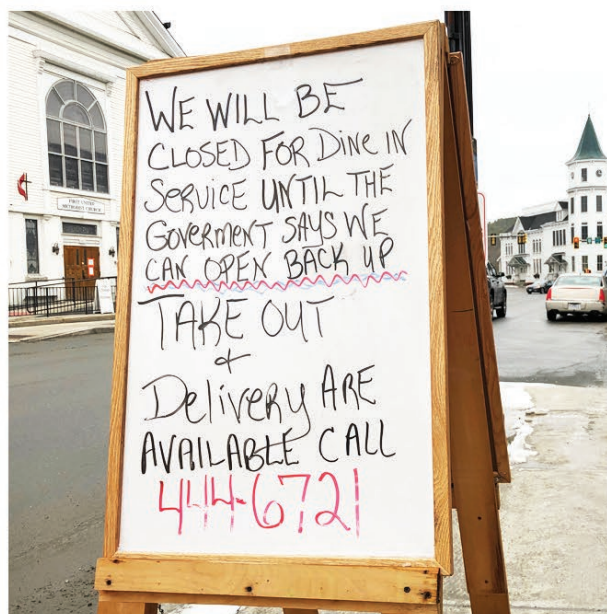 WE WILL BE
CLOSED FOR Dine IN
Service UNTIL THE
GOVERMENT SAYS WE
CAN OPEN BACK UP
TAKE OUT
+
Delivery ARE
AVAILABLE CALL
444-6721
FIRST UNITED
METHODIST CHURCH